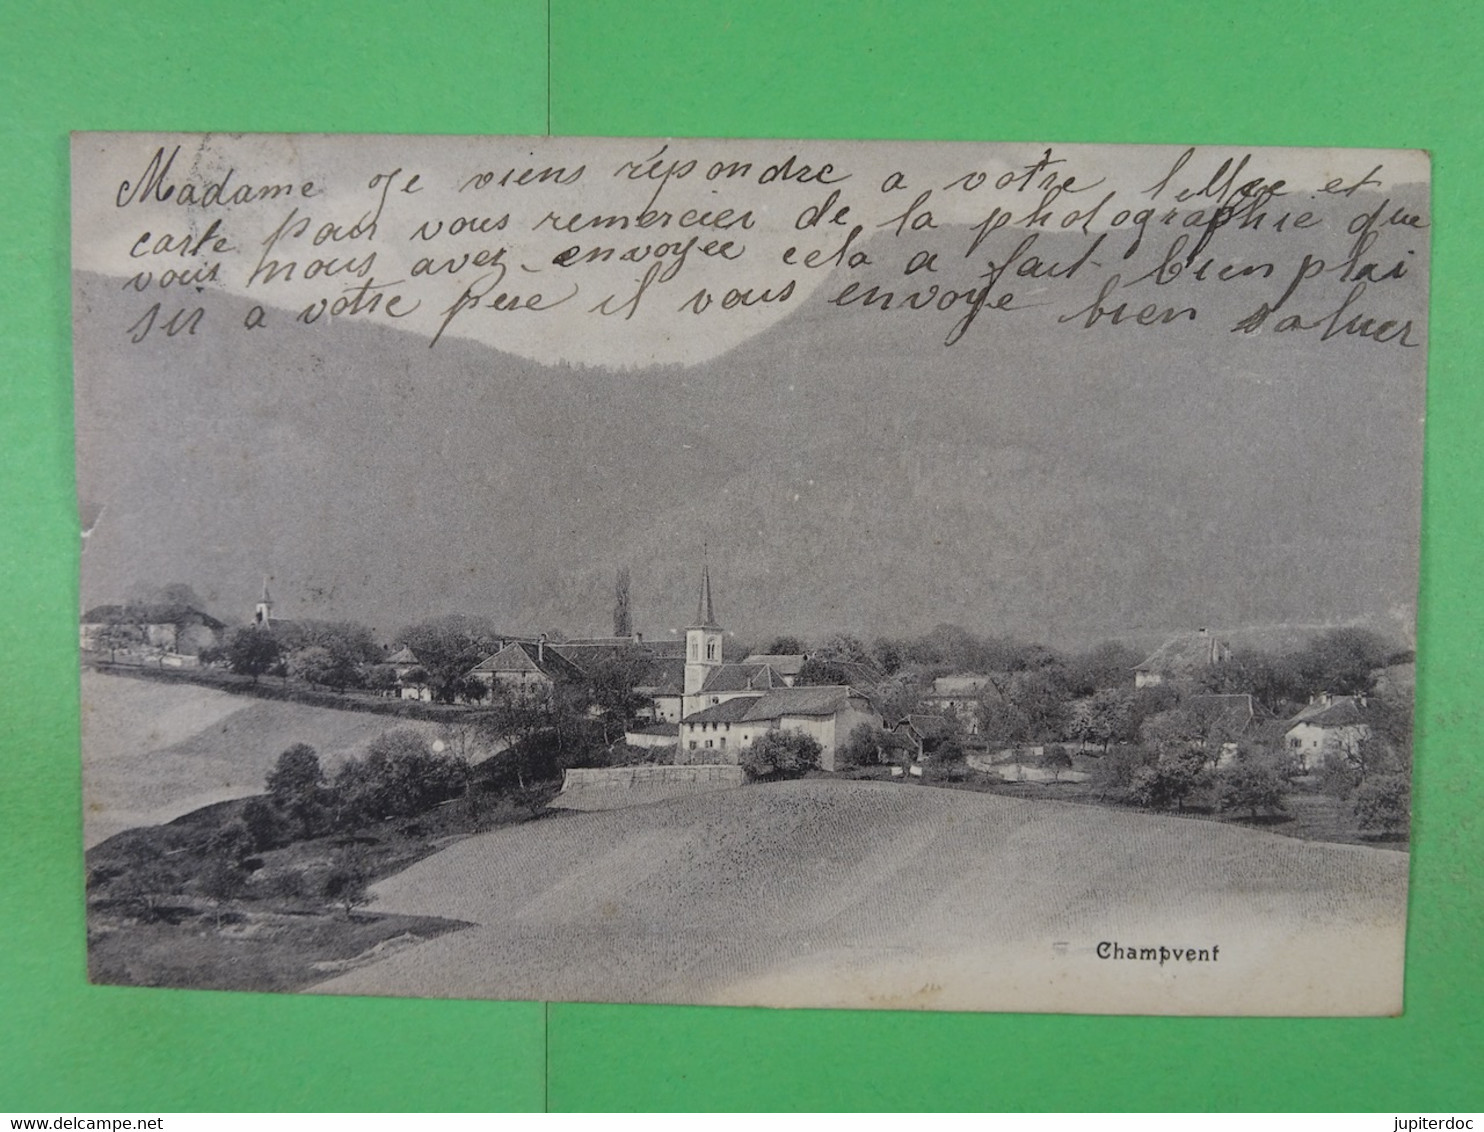 Madame Je viens répondre a votre lettre et
carte pour vous remercier de la photographie que
vous nous avez envoyee cela a fait bien plai
sir a votre pere il vous envoye bien saluer
Champvent
delcampe.net
jupiterdoc